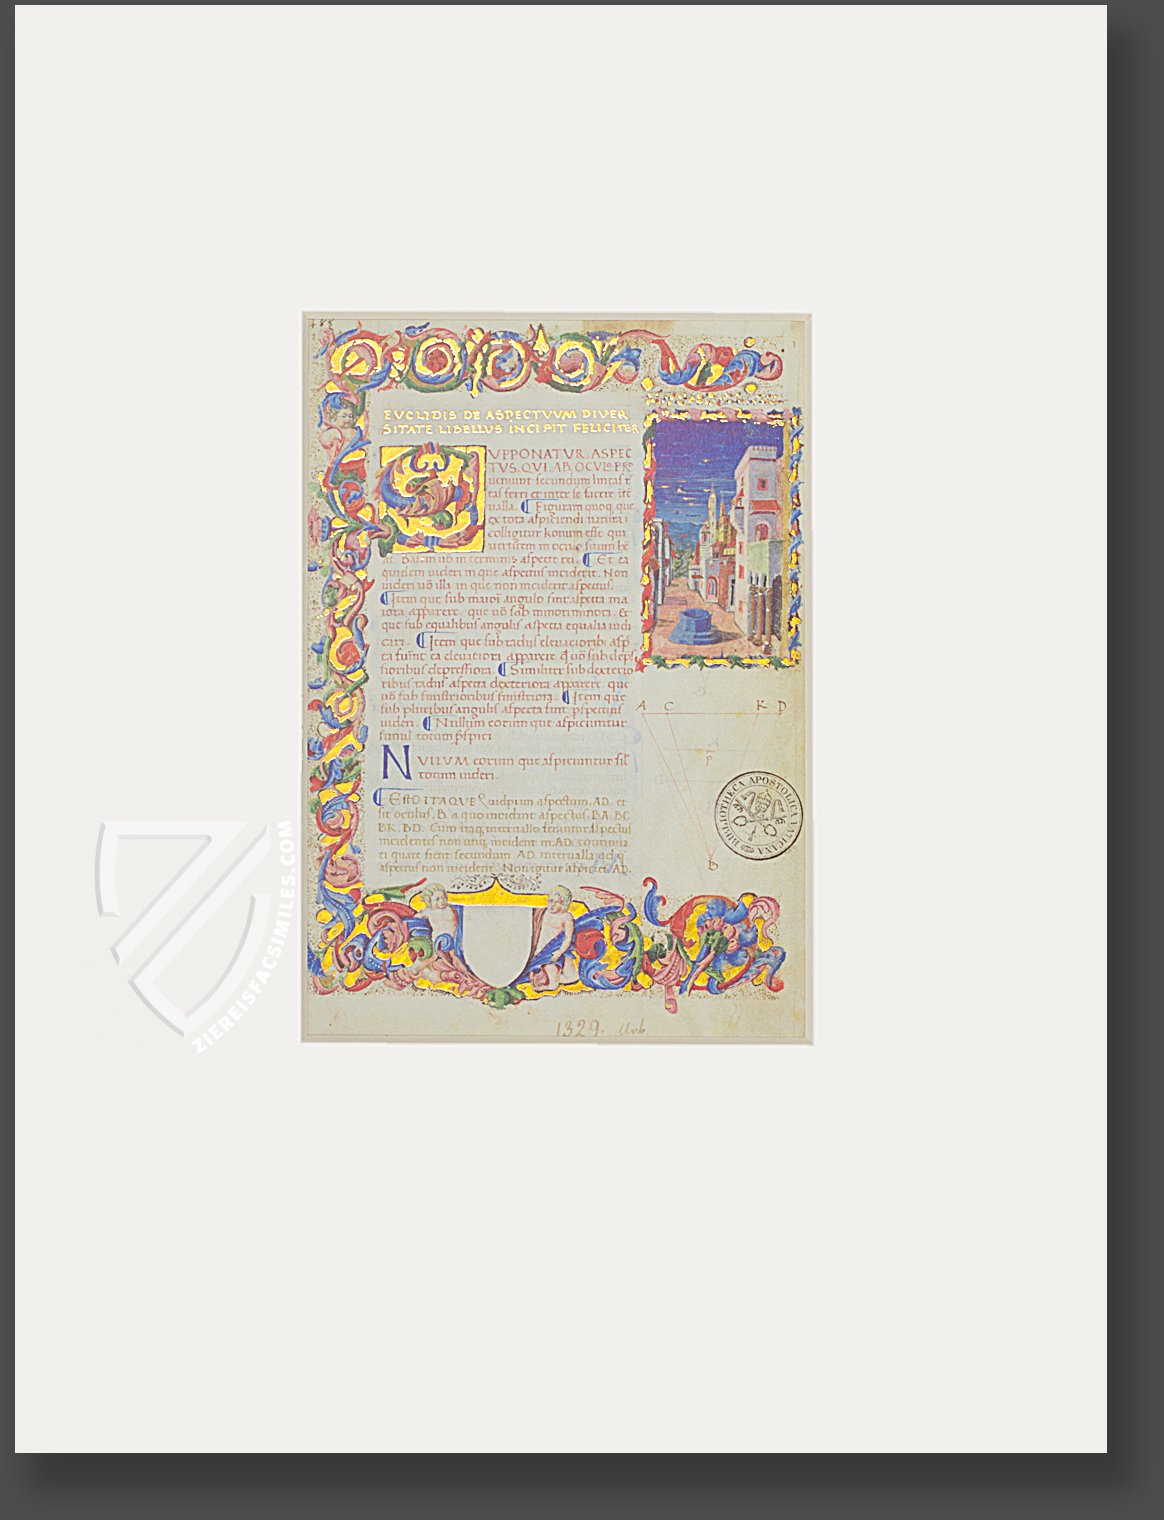 EVCLIDIS DE ASPECTVVM DIVER
SITATE LIBELLVS INCIPIT FELICITER
SVPPONATVR. ASPEC
TVS. QVI. AB. OCVLO. PRO
ueniunt secundum lineas
ferri et inter se facere
ualla. Figuram quoq que
ex toti aspiciendi natura
colligitur konum esse qui
uerticem in oculo situm
Basim in terminis aspecte rei. Et ea
quidem uideri in que aspectus inciderit. Non
uideri illa in que non inciderit aspectus.
Item que sub maiori angulo sint aspecta ma
iora apparere que sub minori minora. Et
que sub equalibus angulis aspecta equalia uidi
eari. Item que sub radiis eleuatiorib. asp
ta ea eleuatiora apparere sub
sioribus depressiora. Similiter sub dexterio
ribus radiis aspecta dexteriora apparere que
sub sinistrioribus sinistriora. Item que
sub pluribus angulis aspecta sint
uideri. Nullum eorum que aspiciuntur
simul totum
NVLLVM eorum que aspiciuntur
totum uideri.
ESTO ITAQVE quidpium aspectum. AD. et
sit oculus. B. a quo incidant aspectus. BA. BC
BK. BD. Cum itaq interuallo ferantur aspectus
incidentes non utiq incident in AD. continua
ti quare fient secundum AD. interualla ad
aspectus non incident. Non igitur AD.
A C K D
P
B
BIBLIOTHECA APOSTOLICA VATICANA
1329. Urb.
ZIEREISFACSIMILES.COM